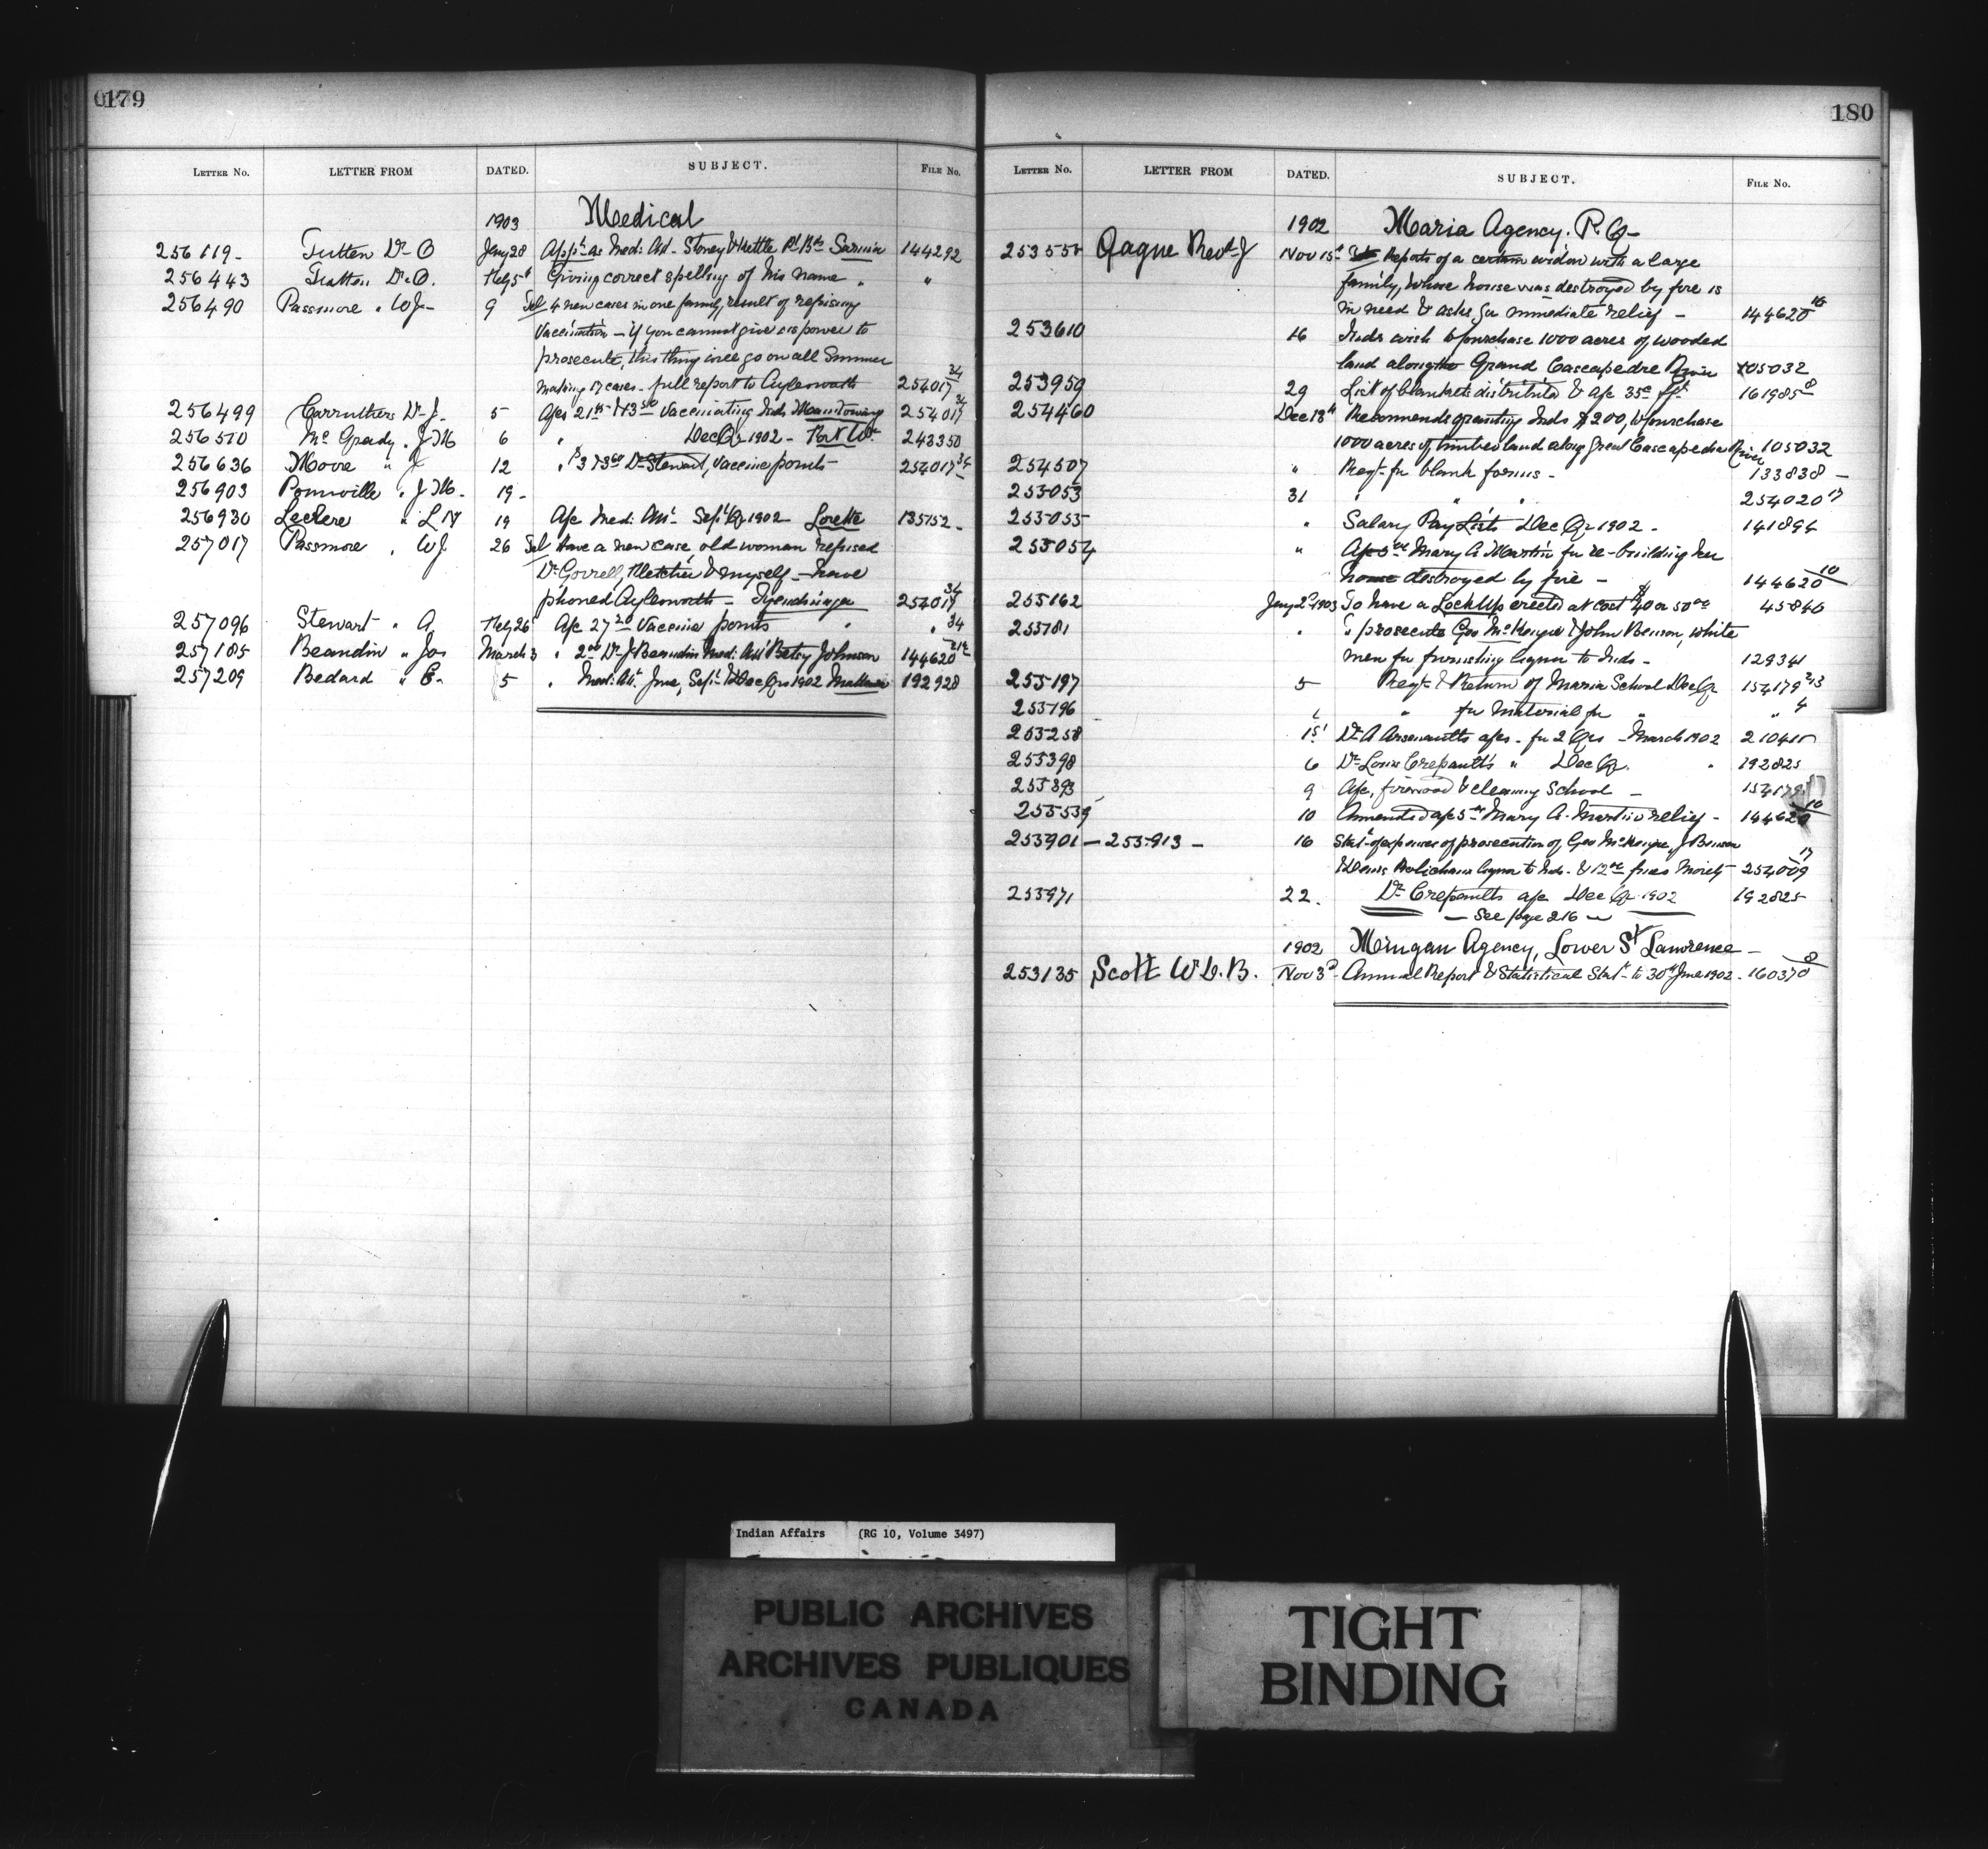 0179
LETTER NO. LETTER FROM DATED. SUBJECT. FILE NO.
1903 Medical
256119 - Tutten Dr O Jany 28 Appt as Med: Att - Stoney & Kettle Pt Bds Sarnia 144292
256443 Tratten Dr. O. Feby 5th Giving correct spelling of his name " "
256490 Passmore " W J - 9 Tel 4 new cases in one family, result of refusing
Vaccination - if you cannot give us power to
prosecute, this thing will go on all Summer
making 17 cases - full report to Aylesworth 254017 34
256499 Carruthers Dr J. 5 Vaccinating Inds Manitowing 254017 34
256510 Mc Grady " J M 6 " Dec Qr 1902 - Port Wr 243350
256636 Moore " J 12 " Dr Stewart, Vaccine points 254017 34
256903 Pomville " J M - 19 -
256930 Leclere " L N 19 A/c Med: Att - Sept Qr 1902 Lorette 135752 -
257017 Passmore " W J 26 Tel Have a new case, old woman refused
Dr Gorrell, Fletcher & myself - have
phoned Aylesworth - Tyendinaga 254017 34
257096 Stewart " A Feby 26 A/c 27 20 Vaccine points " " 34
257185 Beaudin " Jos March 3 " 2 00 Dr J Beaudin Med: Att Betsy Johnson 144620
257209 Bedard " E - 5 " Med: Att June, Sept & Dec Qrs 1902 192928
180
LETTER NO. LETTER FROM DATED. SUBJECT. FILE NO.
1902 Maria Agency. P. Q -
253555 Gagne Revd J Nov 15th Reports of a certain widow with a large
family, whose house was destroyed by fire is
in need & asks for immediate relief - 144620 10
253610 16 Inds wish to purchase 1000 acres of wooded
land along the Grand Cascapedre River 105032
253959 29 List of blankets distributed & a/c 35c fft 161985 8
254460 Dec 13th Recommends granting Inds $200, to purchase
1000 acres of timbered land along Great Cascapedia River 105032
254507 " Reqt - for blank forms - 133838 -
255053 31 " " " 254020 17
255055 " Salary Pay Lists Dec Qr 1902 - 141894
255054 " Mary A Martin for re-building her
house destroyed by fire - 144620 10
255162 Jany 2nd 1903 To have a LockUp erected at cost $40 or 50 00 45840
255181 " To prosecute Geo McKenzie & John Benson, white
men for furnishing liquor to Inds - 129341
255197 5 Reqt & Return of Maria School Dec Qr 154179 2/3
255196 " for Material for " " 4
255258 1st Dr A Arsenaults a/cs - for 2 Qrs - March 1902 210415
255398 6 Dr Louis Crepault's " Dec Qr. " 192825
255393 9 A/c, firewood & cleaning School - 154179
255539 10 Amended a/c Mary A. Martin relief - 144620 10
255901 - 255913 - 16 Stat - of expenses of prosecution of Geo McKenzie, J Benson
& Denis liquor to Inds - & 12 00 fines Moiety 254009 17
255971 22. Dr Crepaults a/c Dec Qr 1902 192825
- See page 216 -
1902 Mingan Agency, Lower St Lawrence -
253135 Scott W L. B. Nov 3d - Annual Report & Statistical Statt - to 30th June 1902 - 160370 8
Indian Affairs (RG 10, Volume 3497)
PUBLIC ARCHIVES
ARCHIVES PUBLIQUES
CANADA
TIGHT
BINDING